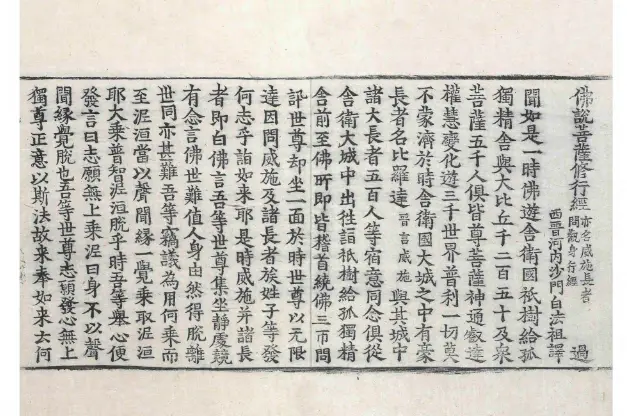 佛說菩薩修行經 亦名威施長者
問觀身行經 過
西晉河内沙門白法祖譯
聞如是一時佛遊舍衛國祇樹給孤
獨精舍與大比丘千二百五十及衆
菩薩五千人俱皆尊菩薩神通叡達
權慧變化遊三千世界普利一切莫
不蒙濟於時舍衛國大城之中有豪
長者名比羅達 晉言威施 與其城中
諸大長者五百人等宿意同念俱從
舍衛大城中出往詣祇樹給孤獨精
舍前至佛所即皆稽首繞佛三帀問
訊世尊却坐一面於時世尊以无限
達因問威施及諸長者族姓子等發
何志乎詣如来耶是時威施并諸長
者即白佛言吾等世尊集坐靜處競
有念言佛世難值人身由然得脫離
世同亦甚難吾等竊議為用何乘而
至泥洹當以聲聞緣一覺乘取泥洹
耶大乘普智泥洹脫乎時吾等舉心便
發言曰志願無上乘泥曰身不以聲
聞緣覺脫也吾等世尊志願發心無上
獨尊正意以斯法故来奉如来云何